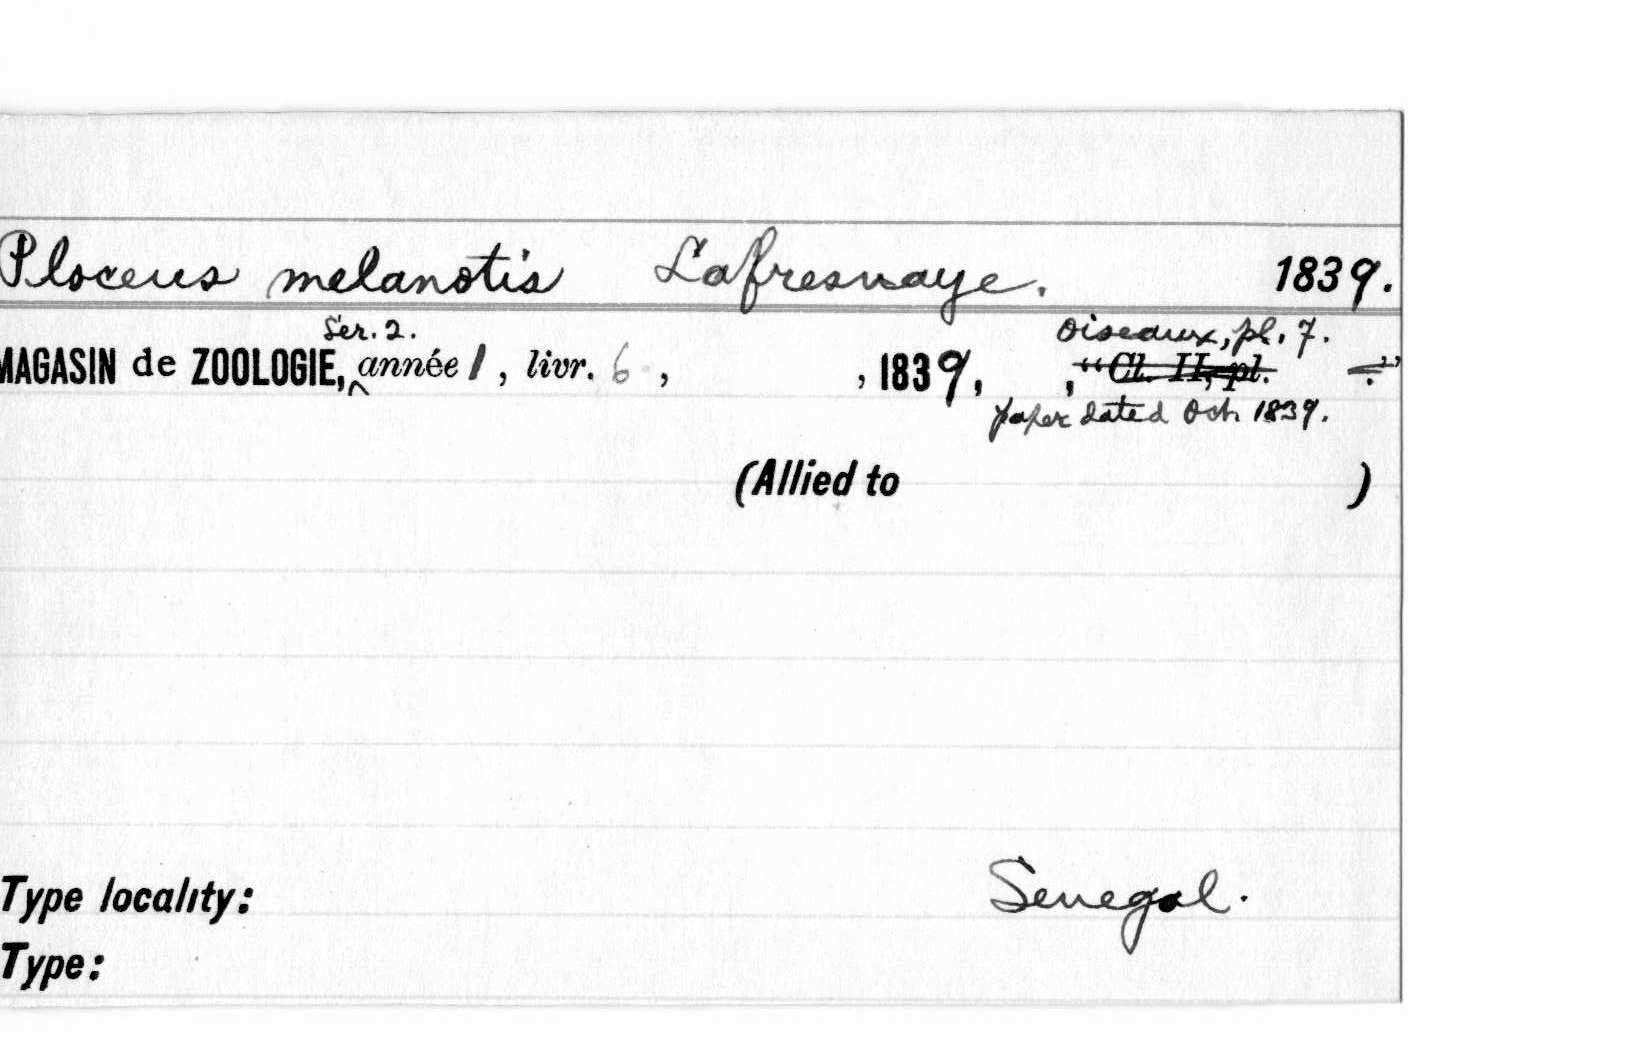 Ploceus melanotis Lafresnaye. 1839.
Ser. 2. Oiseaux, pl. 7.
MAGASIN de ZOOLOGIE, année 1, livr. 6, , 1839, , "Cl. II, pl. ."
paper dated Oct 1839.
(Allied to )
Type locality: Senegal.
Type: